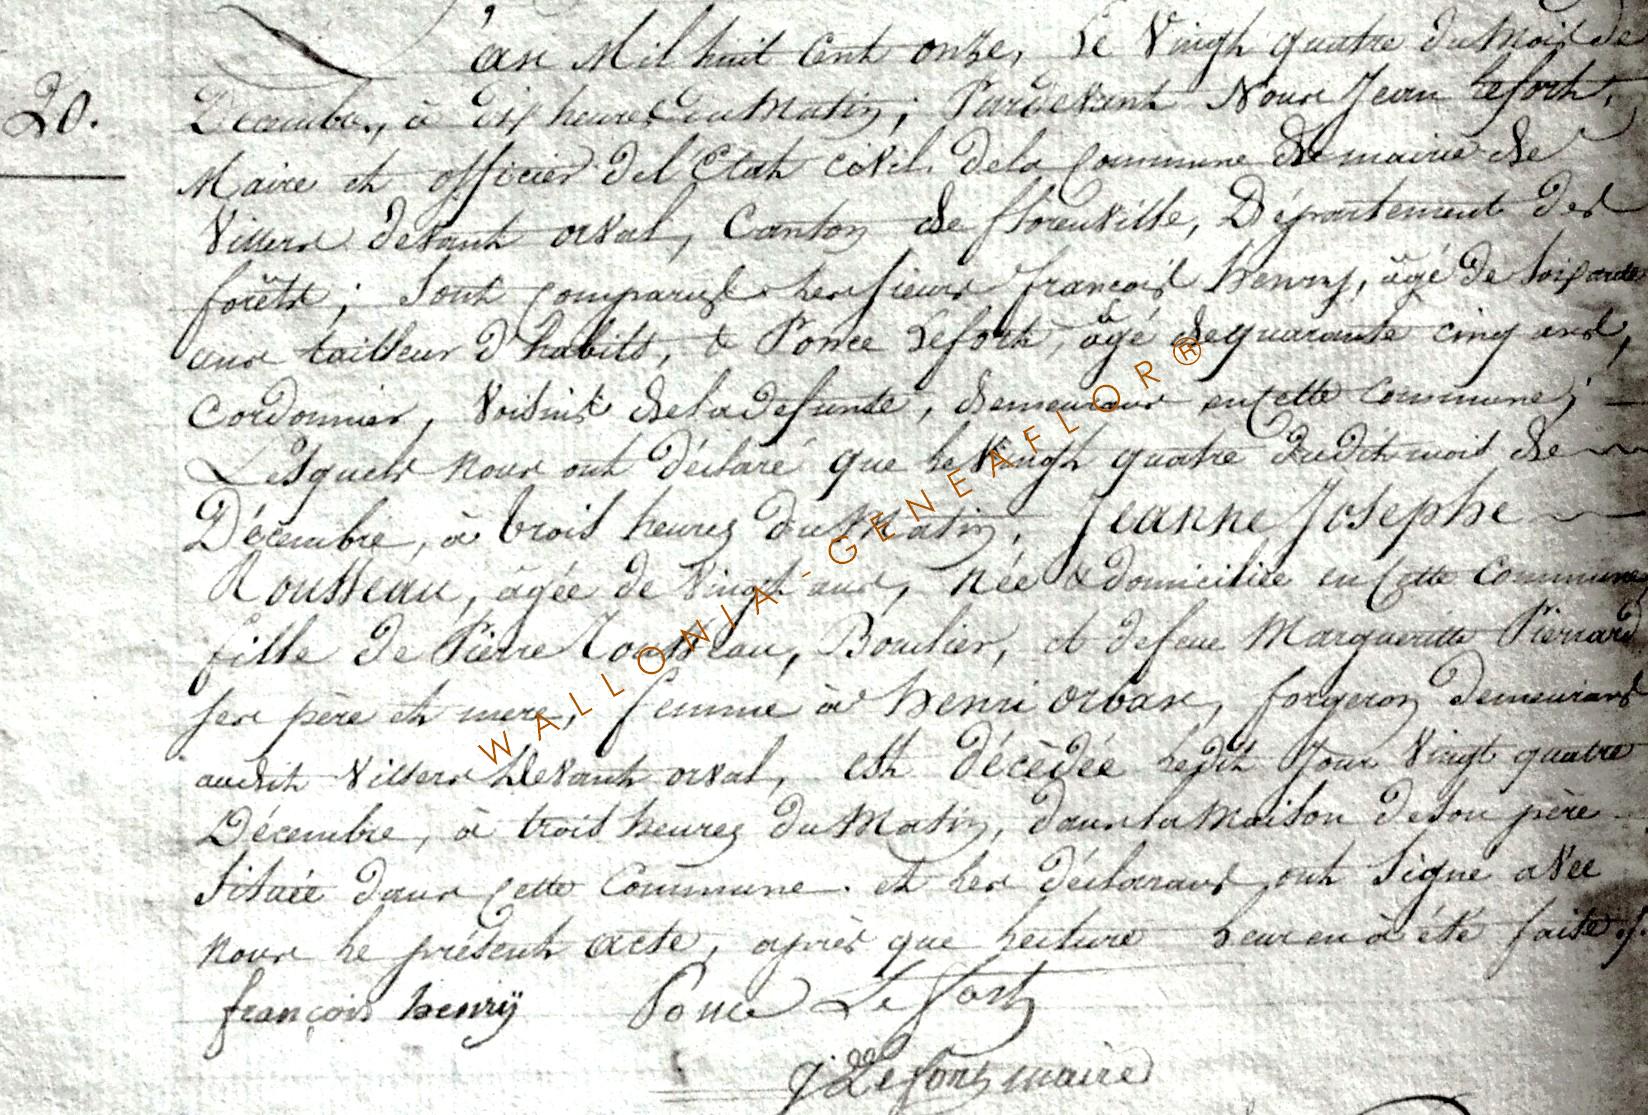 L'an Mil huit Cent onze, Le Vingt quatre du Mois de
20.
Décembre, à dix heures du Matin; Pardevant Nous Jean Lefort,
Maire et officier del'Etat civil dela Commune & mairie de
Villers devant orval, Canton de florenville, Département des
forêts; sont comparus les sieurs françois henry, âgé de soixante
ans tailleur d'habits, & Ponce Lefort, âgé de quarante cinq ans,
Cordonnier, Voisins dela defunte, demeurans en cette Commune;
Lesquels nous ont déclaré que le Vingt quatre dudit mois de
Décembre, à trois heures du Matin, Jeanne Josephe
Rousseau, âgée de Vingt ans, née & domiciliée en cette Commune
fille de Pierre Rousseau, et defeue Margueritte Pierrard
ses père et mere, femme à henri orban, forgeron demeurans
audit Villers Devant orval, est décèdée ledit Jour Vingt quatre
Décembre, à trois heures du Matin, dans la Maison de son père
située dans cette Commune. et les déclarans ont signé avec
nous le présent acte, après que lecture leur en à été faite.
françois henrÿ Ponce Le fort
J Lefort maire
WALLONIA-GENEAFLOR®